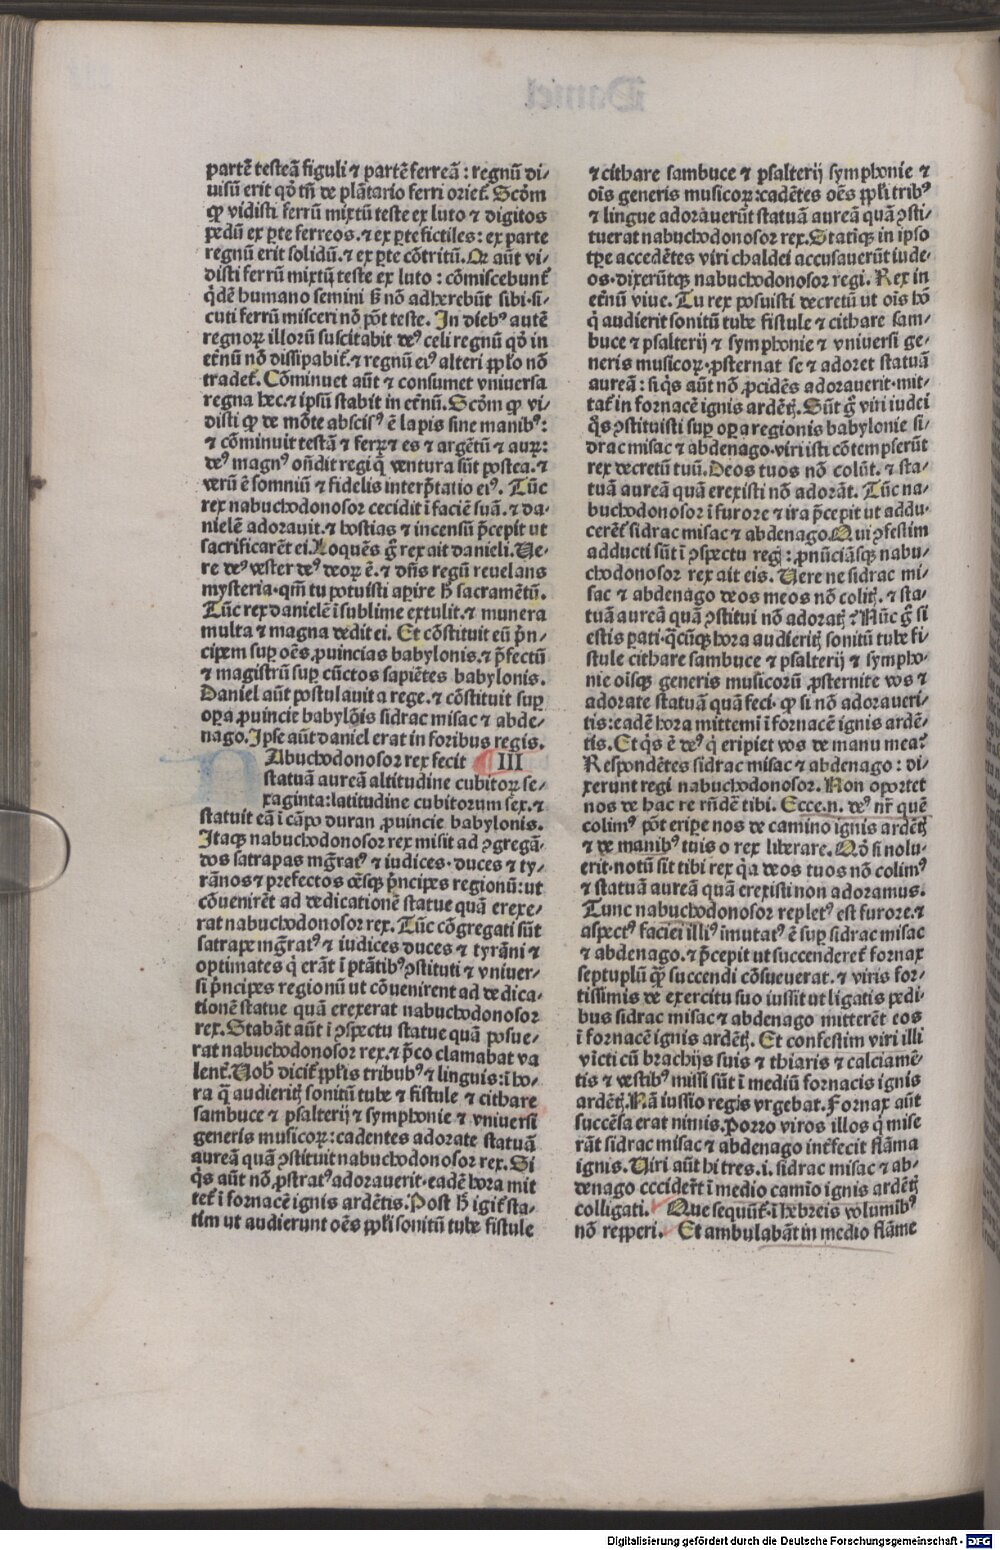 partē testeā figuli ⁊ partē ferreā : regnū di⸗
uisū erit qd̓ tn̄ de plātario ferri oriet᷑. Scd̓m
ꝙ vidisti ferrū mixtū teste ex luto ⁊ digitos
pedū ex ꝑte ferreos. ⁊ ex ꝑte fictiles : ex parte
regnū erit solidū. ⁊ ex ꝑte cōtritū. Qr aūt vi⸗
disti ferrū mixtū teste ex luto : cōmiscebunt᷑
q̇dē humano semini sꝫ nō adherebūt sibi. si⸗
cuti ferrū misceri nō pōt teste. In diebꝰ autē
regnoꝝ illorū suscitabit deꝰ celi regnū qd̓ in
etnū nō dissipabit᷑. ⁊ regnū eiꝰ alteri ꝓplo nō
tradet᷑. Cōminuet aūt ⁊ consumet vniuersa
regna hec. ⁊ ipsū stabit in etnū. Scd̓m ꝙ vi⸗
disti ꝙ de mōte abscisꝰ ē lapis sine manibꝰ :
⁊ cōminuit testā ⁊ ferꝝ ⁊ es ⁊ argētū ⁊ auꝝ :
deꝰ magnꝰ oñdit regi q̄ ventura sūt postea. ⁊
verū ē somniū ⁊ fidelis interp̄tatio eiꝰ. Tūc
rex nabuchodonosor cecidit ī faciē suā. ⁊ da⸗
nielē adorauit. ⁊ hostias ⁊ incensū p̄cepit ut
sacrificarēt ei. Loquēs g̊ rex ait danieli. Ve⸗
re deꝰ vester deꝰ deoꝝ ē. ⁊ dn̄s regū reuelans
mysteria. qm̄ tu potuisti aꝑire h̄ sacramētū.
Tūc rex danielē ī sublime extulit. ⁊ munera
multa ⁊ magna dedit ei. Et cōstituit eū p̄n⸗
cipem suꝑ oēs ꝓuincias babylonis. ⁊ p̄fectū
⁊ magistrū suꝑ cūctos sapiētes babylonis.
Daniel aūt postulauit a rege. ⁊ cōstituit suꝑ
oꝑa ꝓuincie babylōis sidrac misac ⁊ abde⸗
nago. Ipse aūt daniel erat in foribus regis.
Abuchodonosor rex fecit III
statuā aureā altitudine cubitoꝝ se⸗
xaginta : latitudine cubitorum sex. ⁊
statuit eā ī cāpo duran ꝓuincie babylonis.
Itaqꝫ nabuchodonosor rex misit ad ꝯgregā⸗
dos satrapas mg̃ratꝰ ⁊ iudices. duces ⁊ ty⸗
rānos ⁊ prefectos oēsqꝫ p̄ncipes regionū : ut
cōuenirēt ad dedicationē statue quā erexe⸗
rat nabuchodonosor rex. Tūc cōgregati sūt
satrape mg̃ratꝰ ⁊ iudices duces ⁊ tyrāni ⁊
optimates q̇ erāt ī ptātibꝰ ꝯstituti ⁊ vniuer⸗
si p̄ncipes regionū ut cōuenirent ad dedica⸗
tionē statue quā erexerat nabuchodonosor
rex. Stabāt aūt ī ꝯspectu statue quā posue⸗
rat nabuchodonosor rex. ⁊ p̄co clamabat va
lent᷑. Vobꝭ dicit᷑ ꝓplis tribubꝰ ⁊ linguis : ī ho⸗
ra q̄ audieritꝭ sonitū tube ⁊ fistule ⁊ cithare
sambuce ⁊ psalterij ⁊ symphonie ⁊ vniuersi
generis musicoꝝ : cadentes adorate statuā
aureā quā ꝯstituit nabuchodonosor rex. Si
q̇s aūt nō ꝓstratꝰ adorauerit. eadē hora mit
tet᷑ ī fornacē ignis ardētis. Post h̄ igit᷑ sta⸗
tim ut audierunt oēs ꝓpli sonitū tube fistule
⁊ cithare sambuce ⁊ psalterij symphonie ⁊
oīs generis musicoꝝ : cadētes oēs ꝓpli tribꝰ
⁊ lingue adorauerūt statuā aureā quā ꝯsti⸗
tuerat nabuchodonosor rex. Statīqꝫ in ipso
tꝑe accedētes viri chaldei accusauerūt iude⸗
os. dixerūtqꝫ nabuchodonosor regi. Rex in
etnū viue. Tu rex posuisti decretū ut oīs hō
q̇ audierit sonitū tube fistule ⁊ cithare sam⸗
buce ⁊ psalterij ⁊ symphonie ⁊ vniuersi ge⸗
neris musicoꝝ. ꝓsternat se ⁊ adoret statuā
aureā : si q̇s aūt nō ꝓcidēs adorauerit. mit⸗
tat᷑ in fornacē ignis ardētꝭ. Sūt g̊ viri iudei
q̊s ꝯstituisti suꝑ oꝑa regionis babylonie si⸗
drac misac ⁊ abdenago. viri isti cōtempserūt
rex decretū tuū. Deos tuos nō colūt. ⁊ sta⸗
tuā aureā quā erexisti nō adorāt. Tūc na⸗
buchodonosor ī furore ⁊ ira p̄cepit ut addu⸗
cerēt᷑ sidrac misac ⁊ abdenago. Qui ꝯfestim
adducti sūt ī ꝯspectu regꝭ : ꝓnūciāsqꝫ nabu⸗
chodonosor rex ait eis. Vere ne sidrac mi⸗
sac ⁊ abdenago deos meos nō colitꝭ. ⁊ sta⸗
tuā aureā quā ꝯstitui nō adoratꝭ? Nūc g̊ si
estis parati. q̇cūqꝫ hora audieritꝭ sonitū tube fi⸗
stule cithare sambuce ⁊ psalterij ⁊ sympho⸗
nie oīsqꝫ generis musicorū ꝓsternite vos ⁊
adorate statuā quā feci. ꝙ si nō adoraueri⸗
tis : eadē hora mittemī ī fornacē ignis ardē⸗
tis. Et q̇s ē deꝰ q̇ eripiet vos de manu mea?
Respondētes sidrac misac ⁊ abdenago : di⸗
xerunt regi nabuchodonosor. Non oportet
nos de hac re rn̄dē tibi. Ecce. n. deꝰ nr̄ quē
colimꝰ pōt eriꝑe nos de camino ignis ardētꝭ
⁊ de manibꝰ tuis o rex liberare. Qd̓ si nolu⸗
erit. notū sit tibi rex q̇a deos tuos nō colimꝰ
⁊ statuā aureā quā erexisti non adoramus.
Tunc nabuchodonosor repletꝰ est furore. ⁊
aspectꝰ faciei illiꝰ imutatꝰ ē suꝑ sidrac misac
⁊ abdenago. ⁊ p̄cepit ut succenderet᷑ fornax
septuplū ꝙ̄ succendi cōsueuerat. ⁊ viris for⸗
tissimis de exercitu suo iussit ut ligatis pedi⸗
bus sidrac misac ⁊ abdenago mitterēt eos
ī fornacē ignis ardētꝭ. Et confestim viri illi
vīcti cū brachijs suis ⁊ thiaris ⁊ calciamē⸗
tis ⁊ vestibꝰ missi sūt ī mediū fornacis ignis
ardētꝭ. Nā iussio regis vrgebat. Fornax aūt
succēsa erat nimis. Porro viros illos q̇ mise
rāt sidrac misac ⁊ abdenago int᷑fecit flāma
ignis. Viri aūt hi tres. i. sidrac misac ⁊ ab⸗
denago cecider̄t ī medio camīo ignis ardētꝭ
colligati. Que sequūt᷑. ī hebreis volumibꝰ
nō reꝑperi. Et ambulabāt in medio flāme
Digitalisierung gefördert durch die Deutsche Forschungsgemeinschaft - DFG